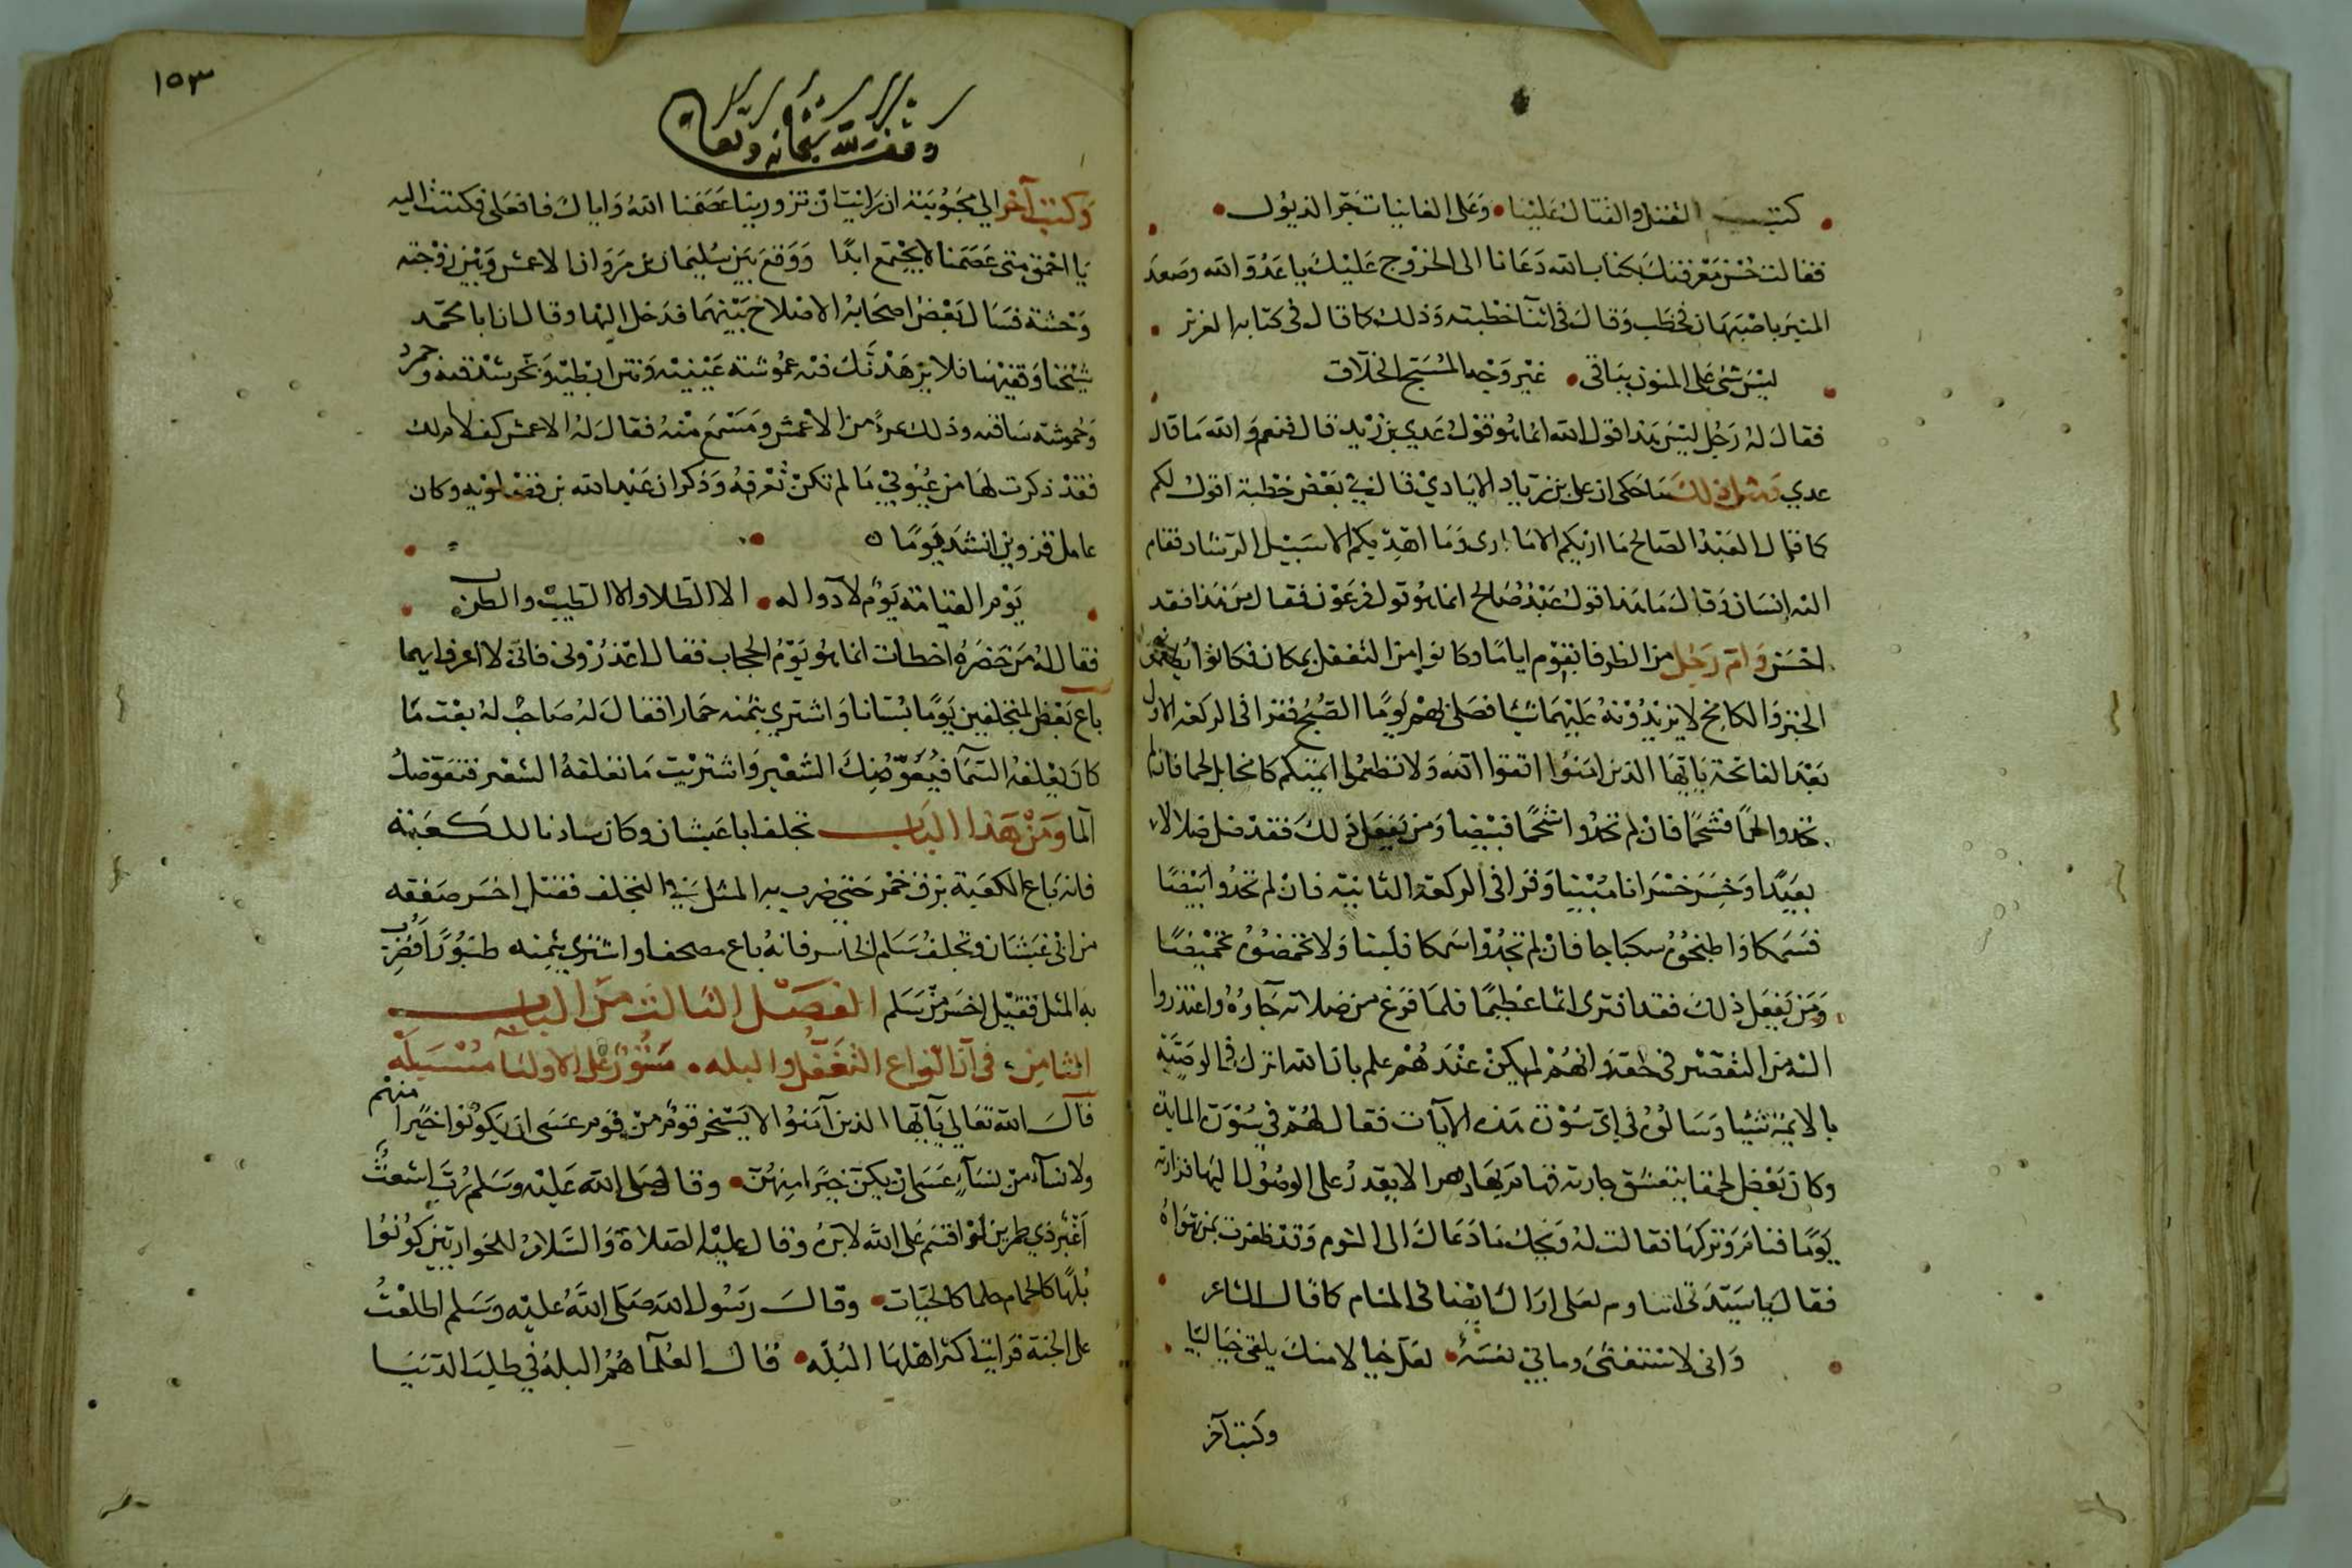 كتب القتل والقتال علينا • وعلى الغانيات جرّ الذيول •
فقالت حسن معرفتك بكتاب الله دعانا الى الخروج عليك يا عدو الله وصعد
المنبر باصبهان فخطب وقال في اثنا خطبته وذلك كما قال في كتابه العزيز
ليس شي على المنون بباقي • غير وجه المسبح الخلاق
فقال له رجل ليس هذا قول الله انما هو قول عدي بن زيد قال فنعم والله ما قال
عدي ومثل ذلك ما حكى ان علي بن زياد الايادي قال في بعض خطبة اقول لكم
كما قال العبد الصالح ما اريكم الا ما ارى وما اهديكم الا سبيل الرشاد فقام
اليه انسان وقال ما هذا قول عبد صالح انما هو قول فرعون فقال من هذا فقد
احسن وامّ رجل من الظرفا بقوم اياما وكانوا من التغفل بمكان فكانوا
الخبز والكامخ لا يزيدونه عليهما شيئا فصلى بهم يوما الصبح فقرا في الركعة الاولى
بعد الفاتحة يايها الذين امنوا اتقوا الله ولا تطعموا ايمتكم كامخا بل لحما فان لم
تجدوا لحما فشحما فان لم تجدوا شحما فبيضا ومن يفعل ذلك فقد ضل ضلالا
بعيدا وخسر خسرانا مبينا وقرا في الركعة الثانية فان لم تجدوا بيضا
فسمكا واطبخوه سكباجا فان لم تجدوا سمكا فلبنا ولا تحمضوه تحميضا
ومن يفعل ذلك فقد افترى اثما عظيما فلما فرغ من صلاته جآوه واعتذروا
اليه من التقصير في حقه وانهم لم يكن عندهم علم بان الله انزل في الوصية
بالايمة شيئا وسالوه في اي سورة هذه الآيات فقال لهم في سورة المايدة
وكان بعض الحمقا يتعشق جارية فهام بها دهرا لا يقدر على الوصول اليها فزارته
يوما فنام وتركها فقالت له ويحك ما دعاك الى النوم وقد ظفرت بمن تهواه
فقال يا سيدتي اتناوم لعلى اراك ايضا في المنام كما قال الشاعر
واني لاستغشي وما بي نعسة • لعل خيالا منك يلقى خياليا
وكتب آخر
١٥٣
وقف لله سبحانه وتعالى
وكتب آخر الى محبوبته ان رايت ان تزورينا عصمنا الله واياك فافعلى فكتبت اليه
يا احمق متى عصمنا لا يجتمع ابدا ووقع بين سليمان بن مروان الاعمش وبين زوجته
وحشة فسال بعض اصحابه الاصلاح بينهما فدخل اليها وقال ان ابا محمد
شيخنا وفقيهنا فلا يزهدنك فيه عموشة عينيه ونتن ابطيه وبخر شدقيه
وحموشة ساقيه وذلك بمرءً من الاعمش ومسمع منه فقال له الاعمش كف لا ام لك
فقد ذكرت لها من عيوبي ما لم تكن تعرفه وذكر ان عبد الله بن فضلويه وكان
عامل قزوين انشد يوما
يوم القيامة يوم لا دوا له • الا الطلا والا الطيب والطرب
فقال له من حضره اخطات انما هو يوم الحجاب فقال اعذروني فانى لا اعرف ايهما
باع بعض المتخلفين يوما بستانا واشترى بثمنه حمارا فقال له صاحب له بعت ما
كان يعلفه السما فيعوضك الشعير واشتريت ما تعلفه الشعير فتعوضك
الما ومن هذا الباب تخلف ابا غبشان وكان سادنا للكعبة
فانه باع الكعبة بزق خمر حتى ضرب به المثل في التخلف فقيل اخسر صفقه
من ابي غبشان وتخلف سلم الخاسر فانه باع مصحفا واشترى بثمنه طنبورا فضرب
به المثل فقيل اخسر من سلم الفصل الثالث من الباب
الثامن في ان انواع التغفل والبله • ستور على الاوليآ مسبله
قال الله تعالى يآايها الذين آمنوا لا يسخر قوم من قوم عسى ان يكونوا خيرا منهم
ولا نسآء من نسآء عسى ان يكن خيرا منهن • وقال صلى الله عليه وسلم رب اشعث
اغبر ذي طمرين لو اقسم على الله لابره وقال عليه الصلاة والسلام للحواريين كونوا
بلها كالحمام حلما كالحيات • وقال رسول الله صلى الله عليه وسلم اطلعت
على الجنة فرايت اكثر اهلها البله • قال العلما هم البله في طلب الدنيا